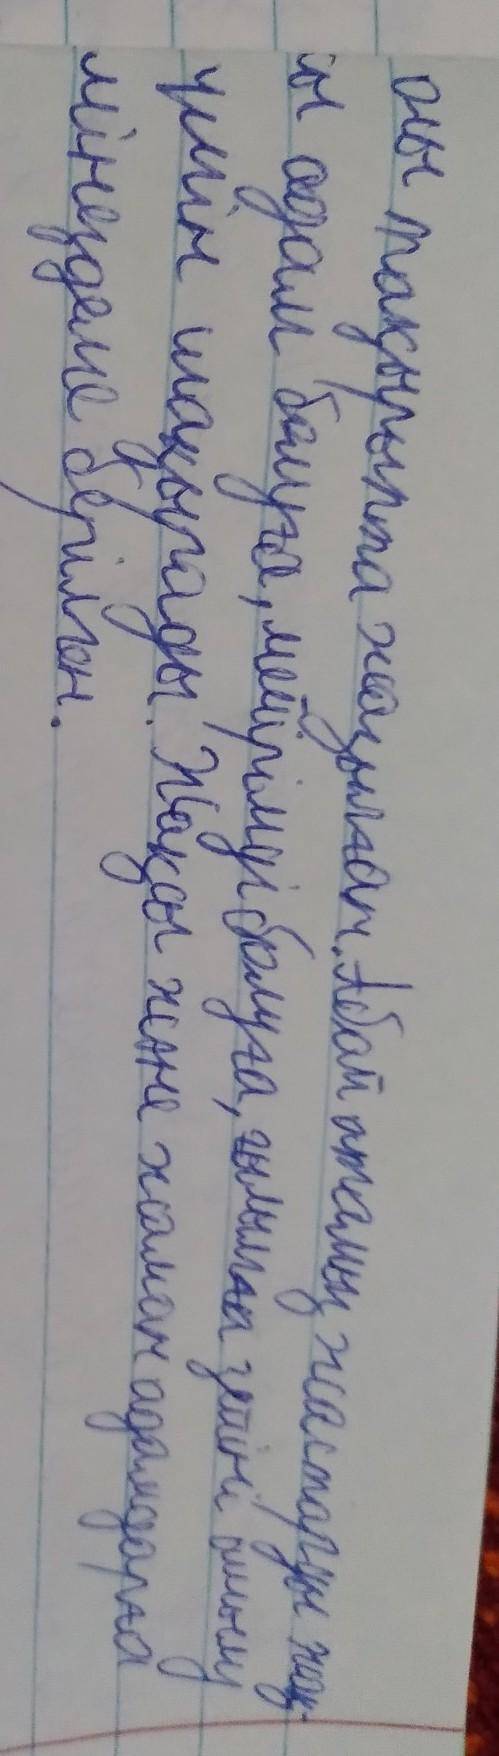 осы тақырыпта жазылған. Абай атамыз жастарды жақ-
сы адам болуға, мейірімді болуға, ғылымға
үшін шақырады. Жақсы және жаман адамдарға
мінездеме берілген.